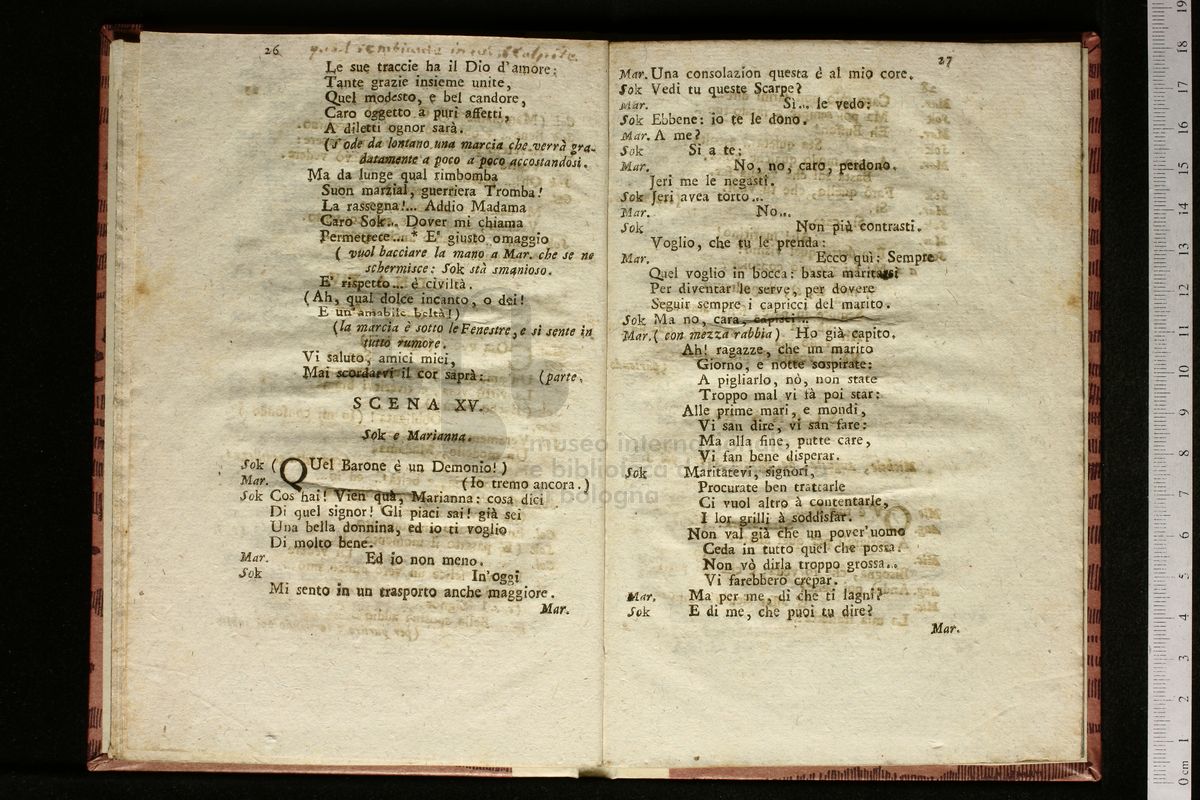 26
qual sembiante in cui scolpite
Le sue traccie ha il Dio d'amore:
Tante grazie insieme unite,
Quel modesto, e bel candore,
Caro oggetto a puri affetti,
A diletti ognor sarà.
(s'ode da lontano una marcia che verrà gra-
datamente a poco a poco accostandosi.
Ma da lunge qual rimbomba
Suon marzial, guerriera Tromba!
La rassegna!... Addio Madama
Caro Sok... Dover mi chiama
Permettete... * E' giusto omaggio
( vuol bacciare la mano a Mar. che se ne
schermisce: Sok stà smanioso.
E' rispetto... è civiltà.
(Ah, qual dolce incanto, o dei!
E un'amabile beltà!)
(la marcia è sotto le Fenestre, e si sente in
tutto rumore.
Vi saluto, amici miei,
Mai scordarvi il cor saprà: (parte.
SCENA XV.
Sok e Marianna.
Sok (QUel Barone è un Demonio!)
Mar. (Io tremo ancora.)
Sok Cos'hai! Vien quà, Marianna: cosa dici
Di quel signor! Gli piaci sai! già sei
Una bella donnina, ed io ti voglio
Di molto bene.
Mar. Ed io non meno.
Sok In'oggi
Mi sento in un trasporto anche maggiore.
Mar.
27
Mar. Una consolazion questa è al mio core.
Sok Vedi tu queste Scarpe?
Mar. Sì... le vedo:
Sok Ebbene: io te le dono.
Mar. A me?
Sok Si a te:
Mar. No, no, caro, perdono.
Jeri me le negasti.
Sok Jeri avea torto...
Mar. No...
Sok Non più contrasti.
Voglio, che tu le prenda:
Mar. Ecco quì: Sempre
Quel voglio in bocca: basta maritarsi
Per diventar le serve, per dovere
Seguir sempre i capricci del marito.
Sok Ma no, cara, capisci...
Mar. ( con mezza rabbia) Ho già capito.
Ah! ragazze, che un marito
Giorno, e notte sospirate:
A pigliarlo, nò, non state
Troppo mal vi fà poi star:
Alle prime mari, e mondi,
Vi san dire, vi san fare:
Ma alla fine, putte care,
Vi fan bene disperar.
Sok Maritatevi, signori,
Procurate ben trattarle
Ci vuol altro à contentarle,
I lor grilli à soddisfar.
Non val già che un pover'uomo
Ceda in tutto quel che possa:
Non vò dirla troppo grossa...
Vi farebbero crepar.
Mar. Ma per me, di che ti lagni?
Sok E di me, che puoi tu dire?
Mar.
museo interna
e biblioteca
bologna
0 cm 1 2 3 4 5 6 7 8 9 10 11 12 13 14 15 16 17 18 19